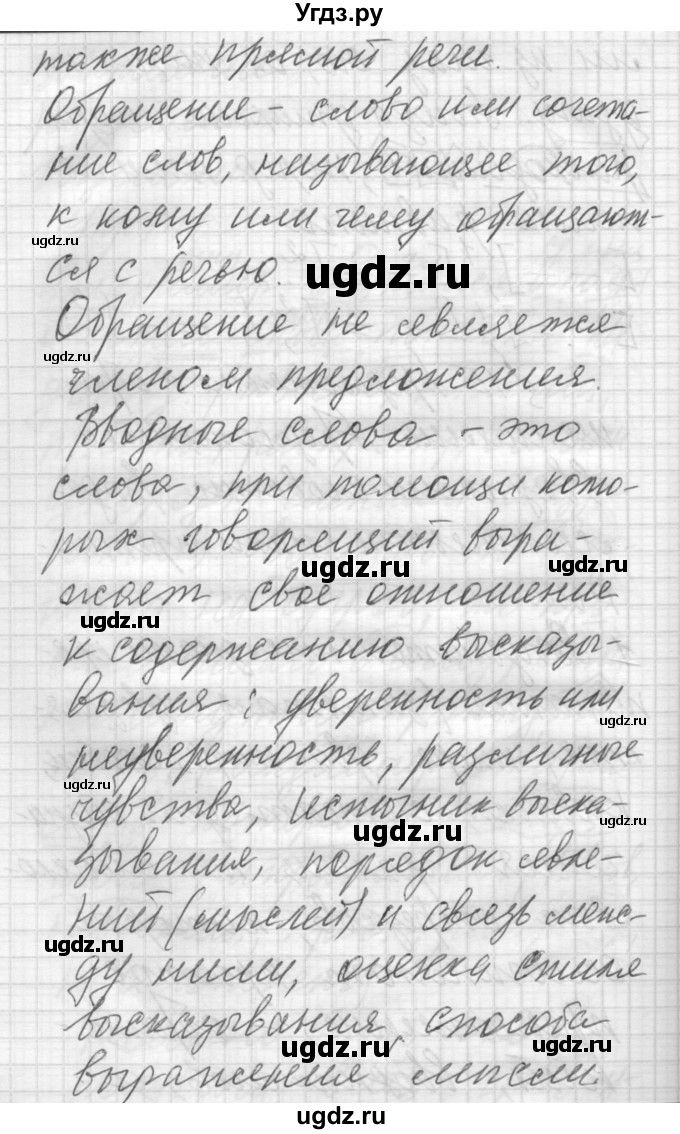 Угдз.ру
также прямой речи.
Обращение – слово или сочета-
ние слов, называющее того,
к кому или чему обращают-
ugdz.ru
ся с речью. ugdz.ru
Обращение не является
ugdz.ru
членом предложения.
Вводные слова – это
слова, при помощи кото-
рых говорящий выра-
ugdz.ru ugdz.ru
жает своё отношение
ugdz.ru
к содержанию высказы-
вания: уверенность или
ugdz.ru
неуверенность, различные
ugdz.ru
чувства, источник выска-
ugdz.ru ugdz.ru
зывания, порядок явле-
ний (мыслей) и связь меж-
ugdz.ru
ду ними, оценка стиля
высказывания, способа
ugdz.ru ugdz.ru
выражения мысли.
ugdz.ru